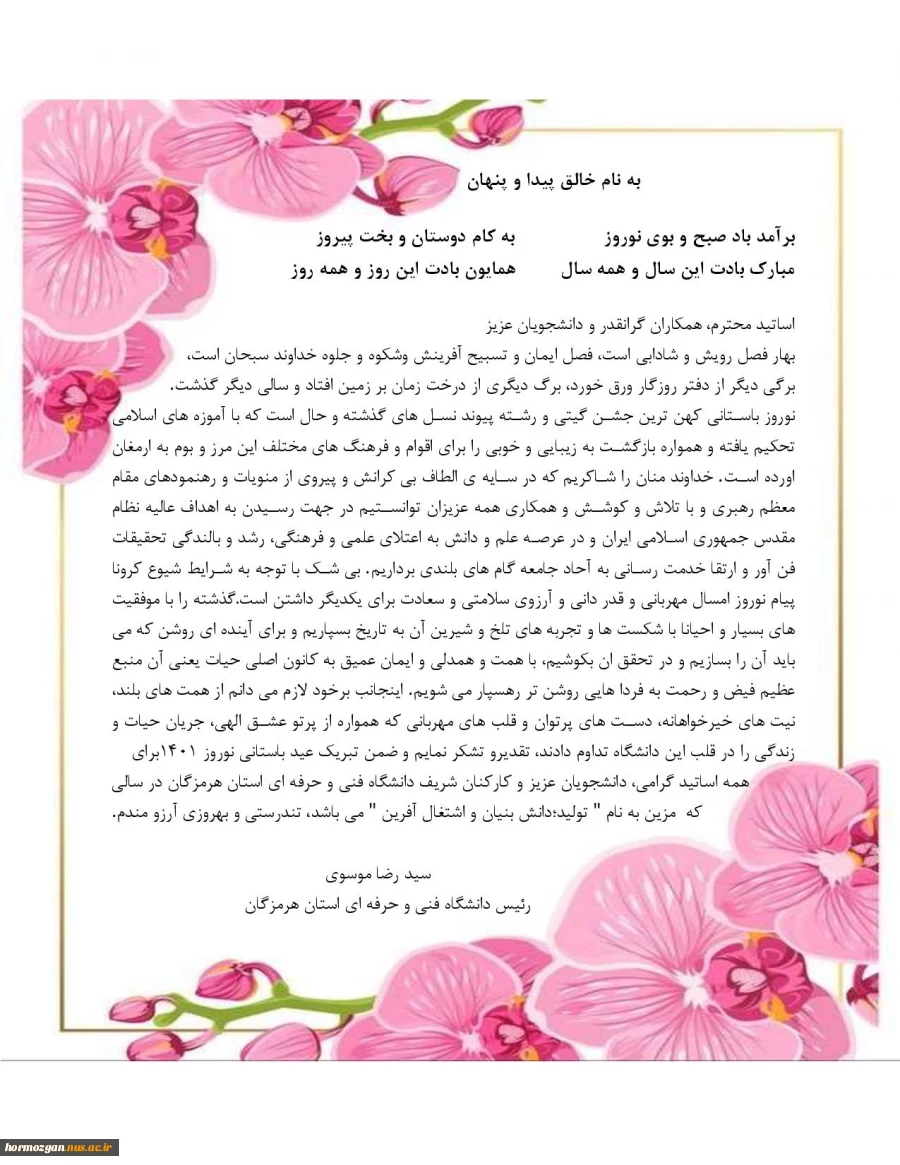 به نام خالق پیدا و پنهان
برآمد باد صبح و بوی نوروز به کام دوستان و بخت پیروز
مبارک بادت این سال و همه سال همایون بادت این روز و همه روز
اساتید محترم، همکاران گرانقدر و دانشجویان عزیز
بهار فصل رویش و شادابی است، فصل ایمان و تسبیح آفرینش وشکوه و جلوه خداوند سبحان است،
برگی دیگر از دفتر روزگار ورق خورد، برگ دیگری از درخت زمان بر زمین افتاد و سالی دیگر گذشت.
نوروز باستانی کهن ترین جشن گیتی و رشته پیوند نسل های گذشته و حال است که با آموزه های اسلامی
تحکیم یافته و همواره بازگشت به زیبایی و خوبی را برای اقوام و فرهنگ های مختلف این مرز و بوم به ارمغان
اورده است. خداوند منان را شاکریم که در سایه ی الطاف بی کرانش و پیروی از منویات و رهنمودهای مقام
معظم رهبری و با تلاش و کوشش و همکاری همه عزیزان توانستیم در جهت رسیدن به اهداف عالیه نظام
مقدس جمهوری اسلامی ایران و در عرصه علم و دانش به اعتلای علمی و فرهنگی، رشد و بالندگی تحقیقات
فن آور و ارتقا خدمت رسانی به آحاد جامعه گام های بلندی برداریم. بی شک با توجه به شرایط شیوع کرونا
پیام نوروز امسال مهربانی و قدر دانی و آرزوی سلامتی و سعادت برای یکدیگر داشتن است.گذشته را با موفقیت
های بسیار و احیانا با شکست ها و تجربه های تلخ و شیرین آن به تاریخ بسپاریم و برای آینده ای روشن که می
باید آن را بسازیم و در تحقق ان بکوشیم، با همت و همدلی و ایمان عمیق به کانون اصلی حیات یعنی آن منبع
عظیم فیض و رحمت به فردا هایی روشن تر رهسپار می شویم. اینجانب برخود لازم می دانم از همت های بلند،
نیت های خیرخواهانه، دست های پرتوان و قلب های مهربانی که همواره از پرتو عشق الهی، جریان حیات و
زندگی را در قلب این دانشگاه تداوم دادند، تقدیرو تشکر نمایم و ضمن تبریک عید باستانی نوروز ۱۴۰۱برای
همه اساتید گرامی، دانشجویان عزیز و کارکنان شریف دانشگاه فنی و حرفه ای استان هرمزگان در سالی
که مزین به نام " تولید؛دانش بنیان و اشتغال آفرین " می باشد، تندرستی و بهروزی آرزو مندم.
سید رضا موسوی
رئیس دانشگاه فنی و حرفه ای استان هرمزگان
hormozgan.nus.ac.ir